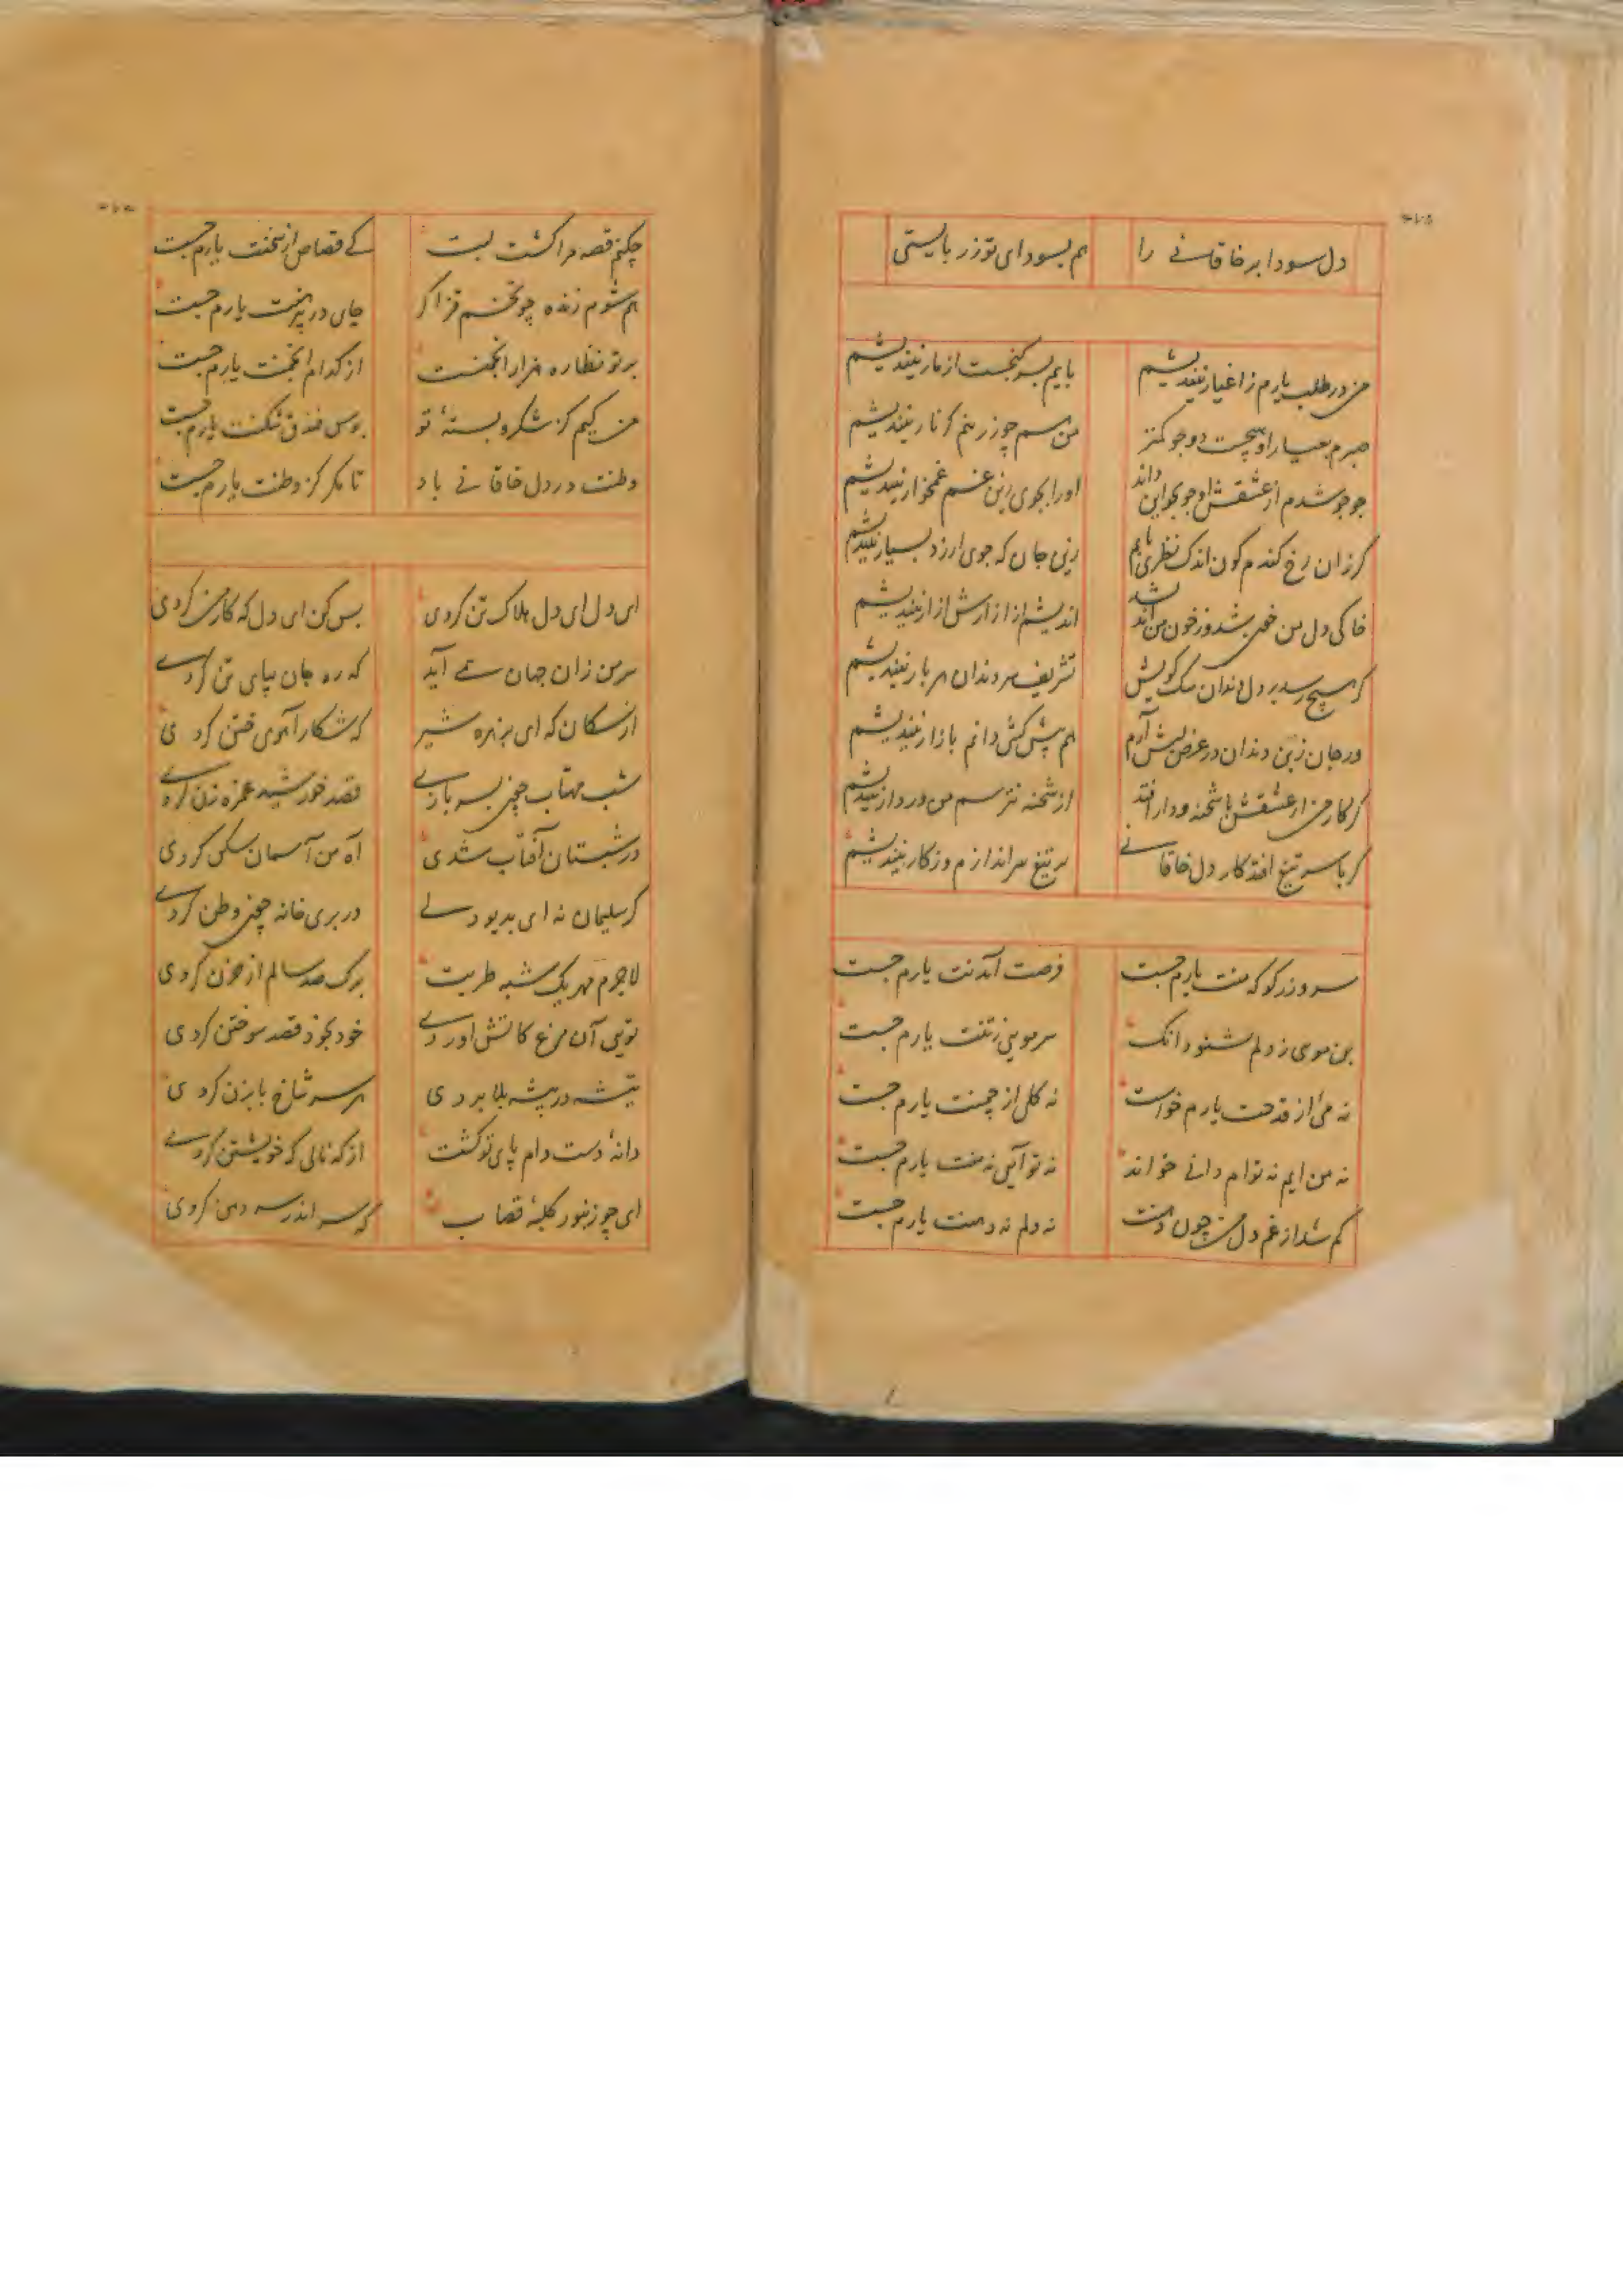 دل سودا بر خاقانی را هم بسودای تو زر بایستی
من در طلب یارم ز اغیار نیندیشم بایم بسر گنجست از مار نیندیشم
صبرم بعیار او هیچست دو جو کمتر من هم چو زر نم کز نار نیندیشم
جو جو شدم از عشقش او جو بجو این داند او را بجوی زین غم غمخوار نیندیشم
گر زان رخ گندم گون اندک نظری یابم زین جان که جوی ارزد بسیار نیندیشم
خاکی دل من خون شد وز خون من اند شد اندیشم از آزارش از آزار نیندیشم
گر هیچ رسد بر دل دندان سگ کویش تشریف سر دندان هر بار نیندیشم
ور جان زبن دندان در عرض لبش آرم هم پیش کش دانم بازار نیندیشم
گر کار من از عشقش با شحنه و دار افتد از شحنه نترسم من وز دار نیندیشم
گر با سر تیغ افتد کار دل خاقانی بر تیغ سر اندازم وز کار نیندیشم
سر و زر کو که منت یارم جست فرصت آمدنت یارم جست
بن موی ز دلم نشنود انک سر مویی ز تنت یارم جست
نه می از قدحت یارم خواست نه گل از چمنت یارم جست
نه من ایم نه توام دانی خواند نه تو آیی نه منت یارم جست
گم شد از غم دل من چون دهنت نه دلم نه دهنت یارم جست
چکنم قصه مرا کشت لبت کی قصاص از سخنت یارم جست
هم شوم زنده چو تخم قز اگر جای در پیرهنت یارم جست
بر تو نظاره هزار انجمنست از کدام انجمنت یارم جست
من کیم کز شکر و پستهٔ تو بوس فندق شکنت یارم جست
وطنت در دل خاقانی باد تا مگر کز وطنت یارم جست
ای دل ای دل هلاک تن کردی بس کن ای دل که کار من کردی
سر من زان جهان همی آید که ره جان بپای تن کردی
از سگان که ای بزهره شیر که شکار آهوی ختن کردی
شب مهتاب چون بسر بازی قصد خورشید غمزه زن کردی
در شبستان آفتاب شدی آه من آسمان شکن کردی
گر سلیمان نه ای بدیو دلی در پری خانه چون وطن کردی
لاجرم بهر یک شبه طربت برگ صد سالم از حزن کردی
تویی آن مرغ کاتش اوردی خود بخود قصد سوختن کردی
تیشه در بیشه بلا بردی هر سر شاخ بابزن کردی
دانهٔ دست دام پای تو گشت از که نالی که خویشتن کردی
ای چو زنبور کلبهٔ قصاب که سر اندر سر دهن کردی